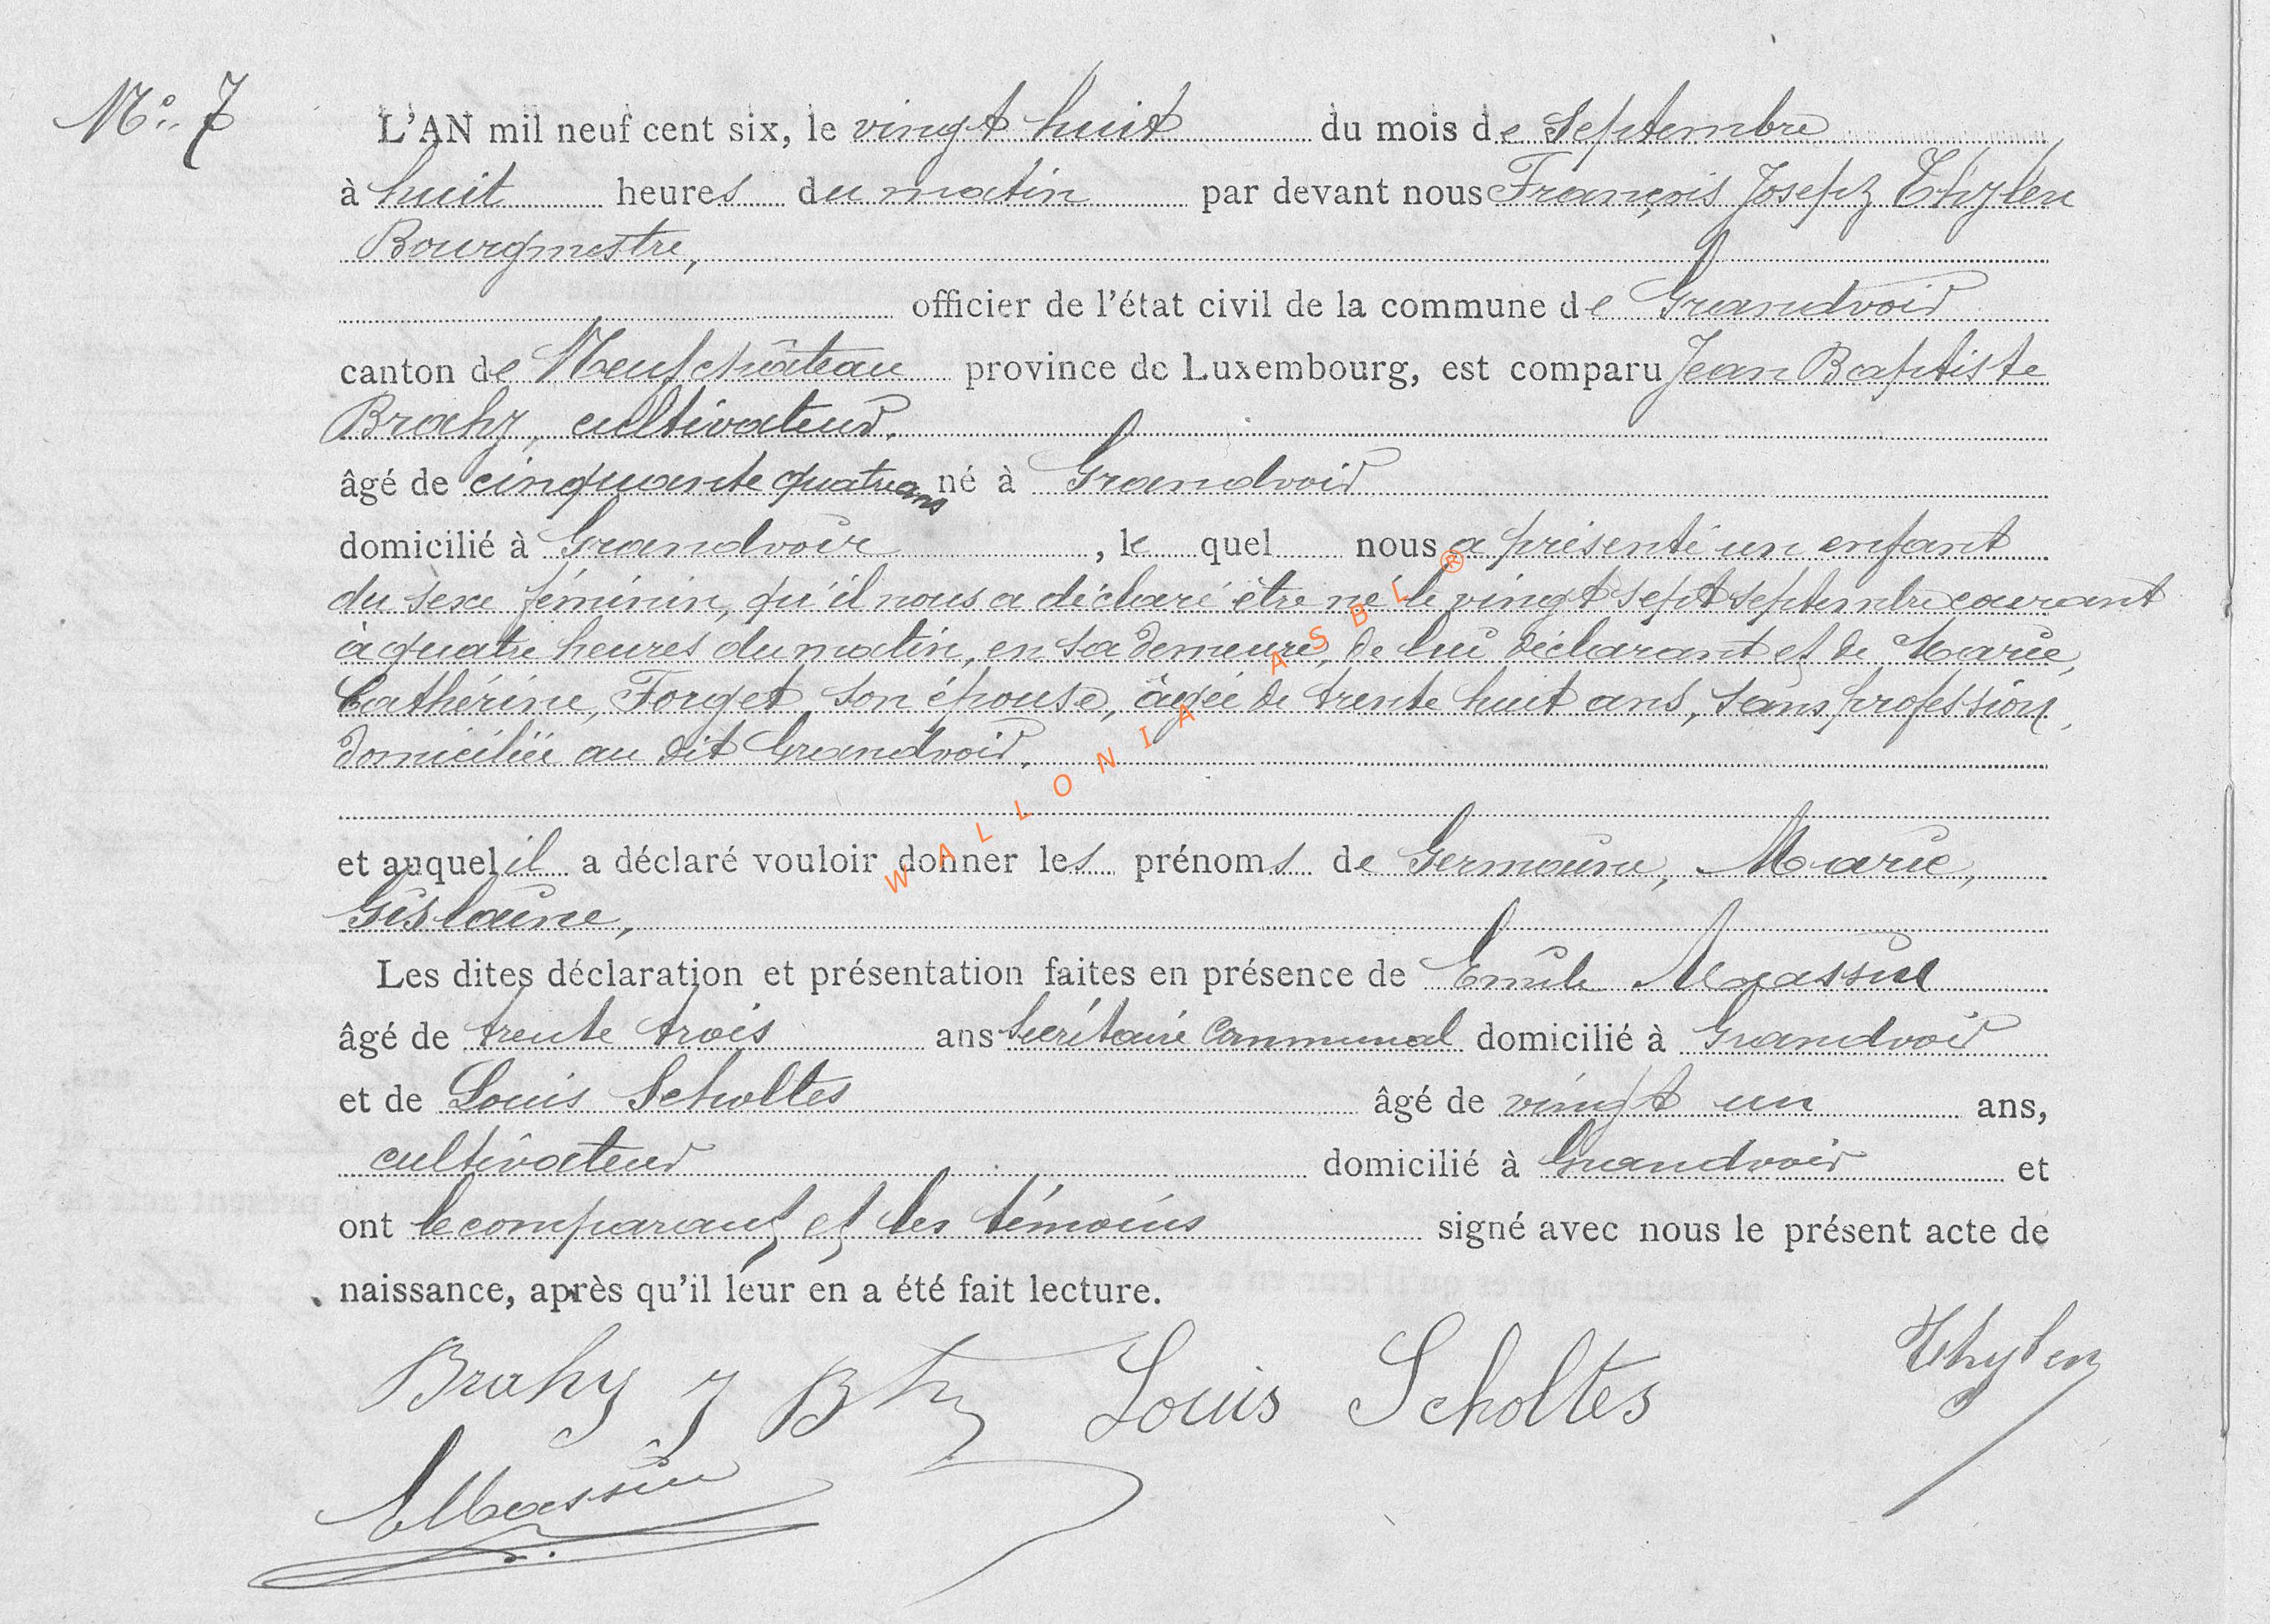 N° 7
L'AN mil neuf cent six, le vingt huit du mois de Septembre
à huit heures du matin par devant nous François Joseph Thylen
Bourgmestre,
officier de l'état civil de la commune de Grandvoir
canton de Neufchâteau province de Luxembourg, est comparu Jean Baptiste
Brahy, cultivateur,
âgé de cinquante quatre ans né à Grandvoir
domicilié à Grandvoir, le quel nous a présenté un enfant
du sexe féminin, qu'il nous a déclaré être né le vingt sept septembre courant
à quatre heures du matin, en sa demeure, de lui déclarant et de Marie,
Cathérine, Forget son épouse, âgée de trente huit ans, sans profession,
domiciliée au dit Grandvoir.
et auquel il a déclaré vouloir donner les prénoms de Germaine, Marie,
Gislaine,
Les dites déclaration et présentation faites en présence de Emile Massul
âgé de trente trois ans Secrétaire Communal domicilié à Grandvoir
et de Louis Scholtes âgé de vingt un ans,
cultivateur domicilié à Grandvoir et
ont le comparant et les témoins signé avec nous le présent acte de
naissance, après qu'il leur en a été fait lecture.
Brahy J Bte Louis Scholtes Thylen
E Massin
WALLONIA ASBL ®